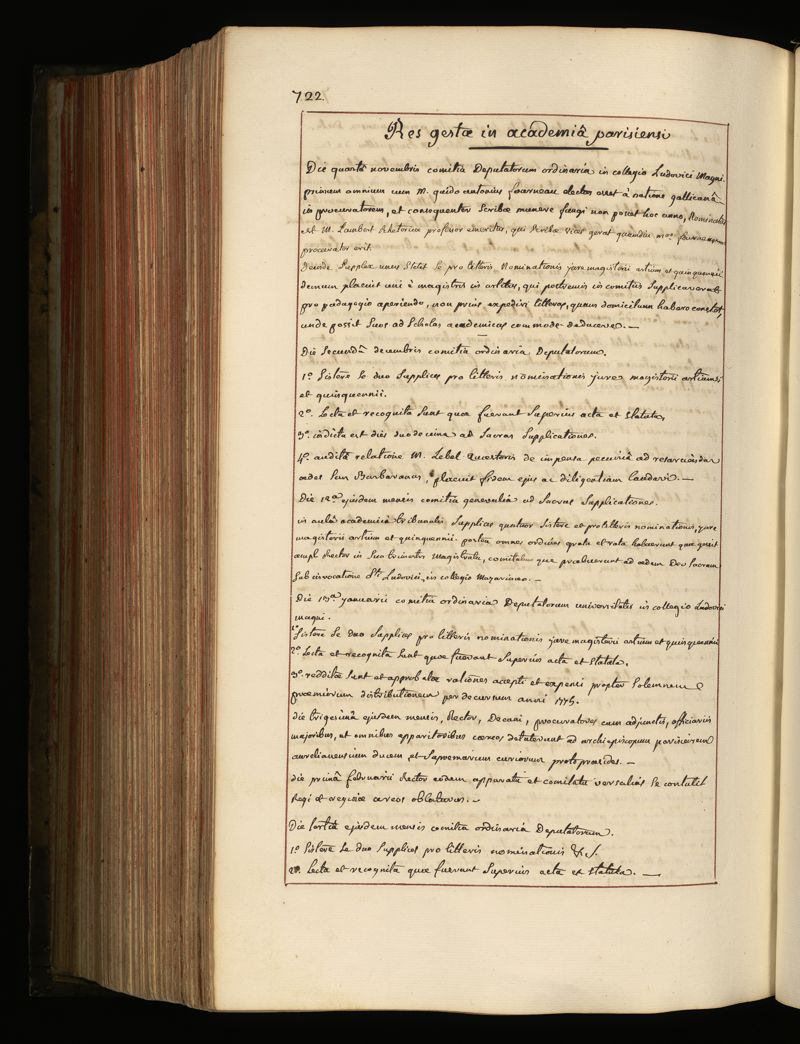 722.
Res gestæ in academiâ parisiensi
Die quartâ novembris comitia Deputatorum ordinaria in collegio Ludovici Magni.
primum omnium cum M. guido antonius fourneau electus erat à natione gallicanâ
in procuratorem, et consequenter Scribæ munere fungi non posset hoc anno, Nominatus
est M. Lambert Rhetoricæ professor emeritus, qui Scribæ vices gerat quamdiu M. fourneau
procurator erit.
Deinde Supplex unus Stetit Se pro litteris Nominationis jure magisterii artium et quinquennii
demum placuit uni è magistris in artibus, qui postremis in comitiis Supplicaverat
pro pædagogio aperiendo, non prius expediri litteras, quam domicilium habere constet,
unde possit Suos ad Scholas academicas commode deducere. —
Die Secundâ decembris comitia ordinaria Deputatorum.
1.º Sistere Se duo Supplices pro litteris nominationis jure magisterii artium
et quinquennii.
2.º Lecta et recognita Sunt quæ fuerant Superius acta et Statuta,
3.º indicta est dies duodecima ad Sacras Supplicationes.
4.º auditâ relatione M. Lebel Quæstoris de impensa pecuniâ ad resarciendas
ædes San Barbaranas, placuit fidem ejus ac diligentiam laudari. —
Die 12.ª ejusdem mensis comitia generalia ad Sacras Supplicationes.
in aulâ academicâ tribunalis Supplices quatuor Sistere et pro litteris nominationis, jure
magisterii artium et quinquennii. postea omnes ordines grata et rata habuerunt quæ gessit
ampl. Rector in Suo trimestri Magistratu, comitatum que præbuerunt ad ædem Deo Sacram
Sub invocatione S.ti Ludovici, in collegio Mazarinæo. —
Die 13.ª januarii comitia ordinaria Deputatorum universitatis in collegio Ludovici
magni.
1.º Sistere Se duo Supplices pro litteris nominationis jure magisterii artium et quinquennii
2.º Lecta et recognita Sunt quæ fuerant Superius acta et Statuta.
3.º redditæ Sunt et approbatæ rationes accepti et expensi propter Solemnem
præmiorum distributionem per decursum anni 1775.
die trigesimâ ejusdem mensis, Rector, Decani, procuratores cum adjunctis, officiariis
majoribus, et omnibus apparitoribus cereos detulerunt ad archiepiscopum parisiensem
aurelianensium ducem et Supremarum curiarum protopræsides. —
die primâ februarii Rector eodem apparatu et comitatu versalias Se contulit
Regi et reginæ cereos oblaturus. —
Die tertiâ ejusdem mensis comitia ordinaria Deputatorum.
1.º Sistere Se duo Supplices pro litteris nominationis &c.
2.º Lecta et recognita quæ fuerant Superius acta et Statuta. —